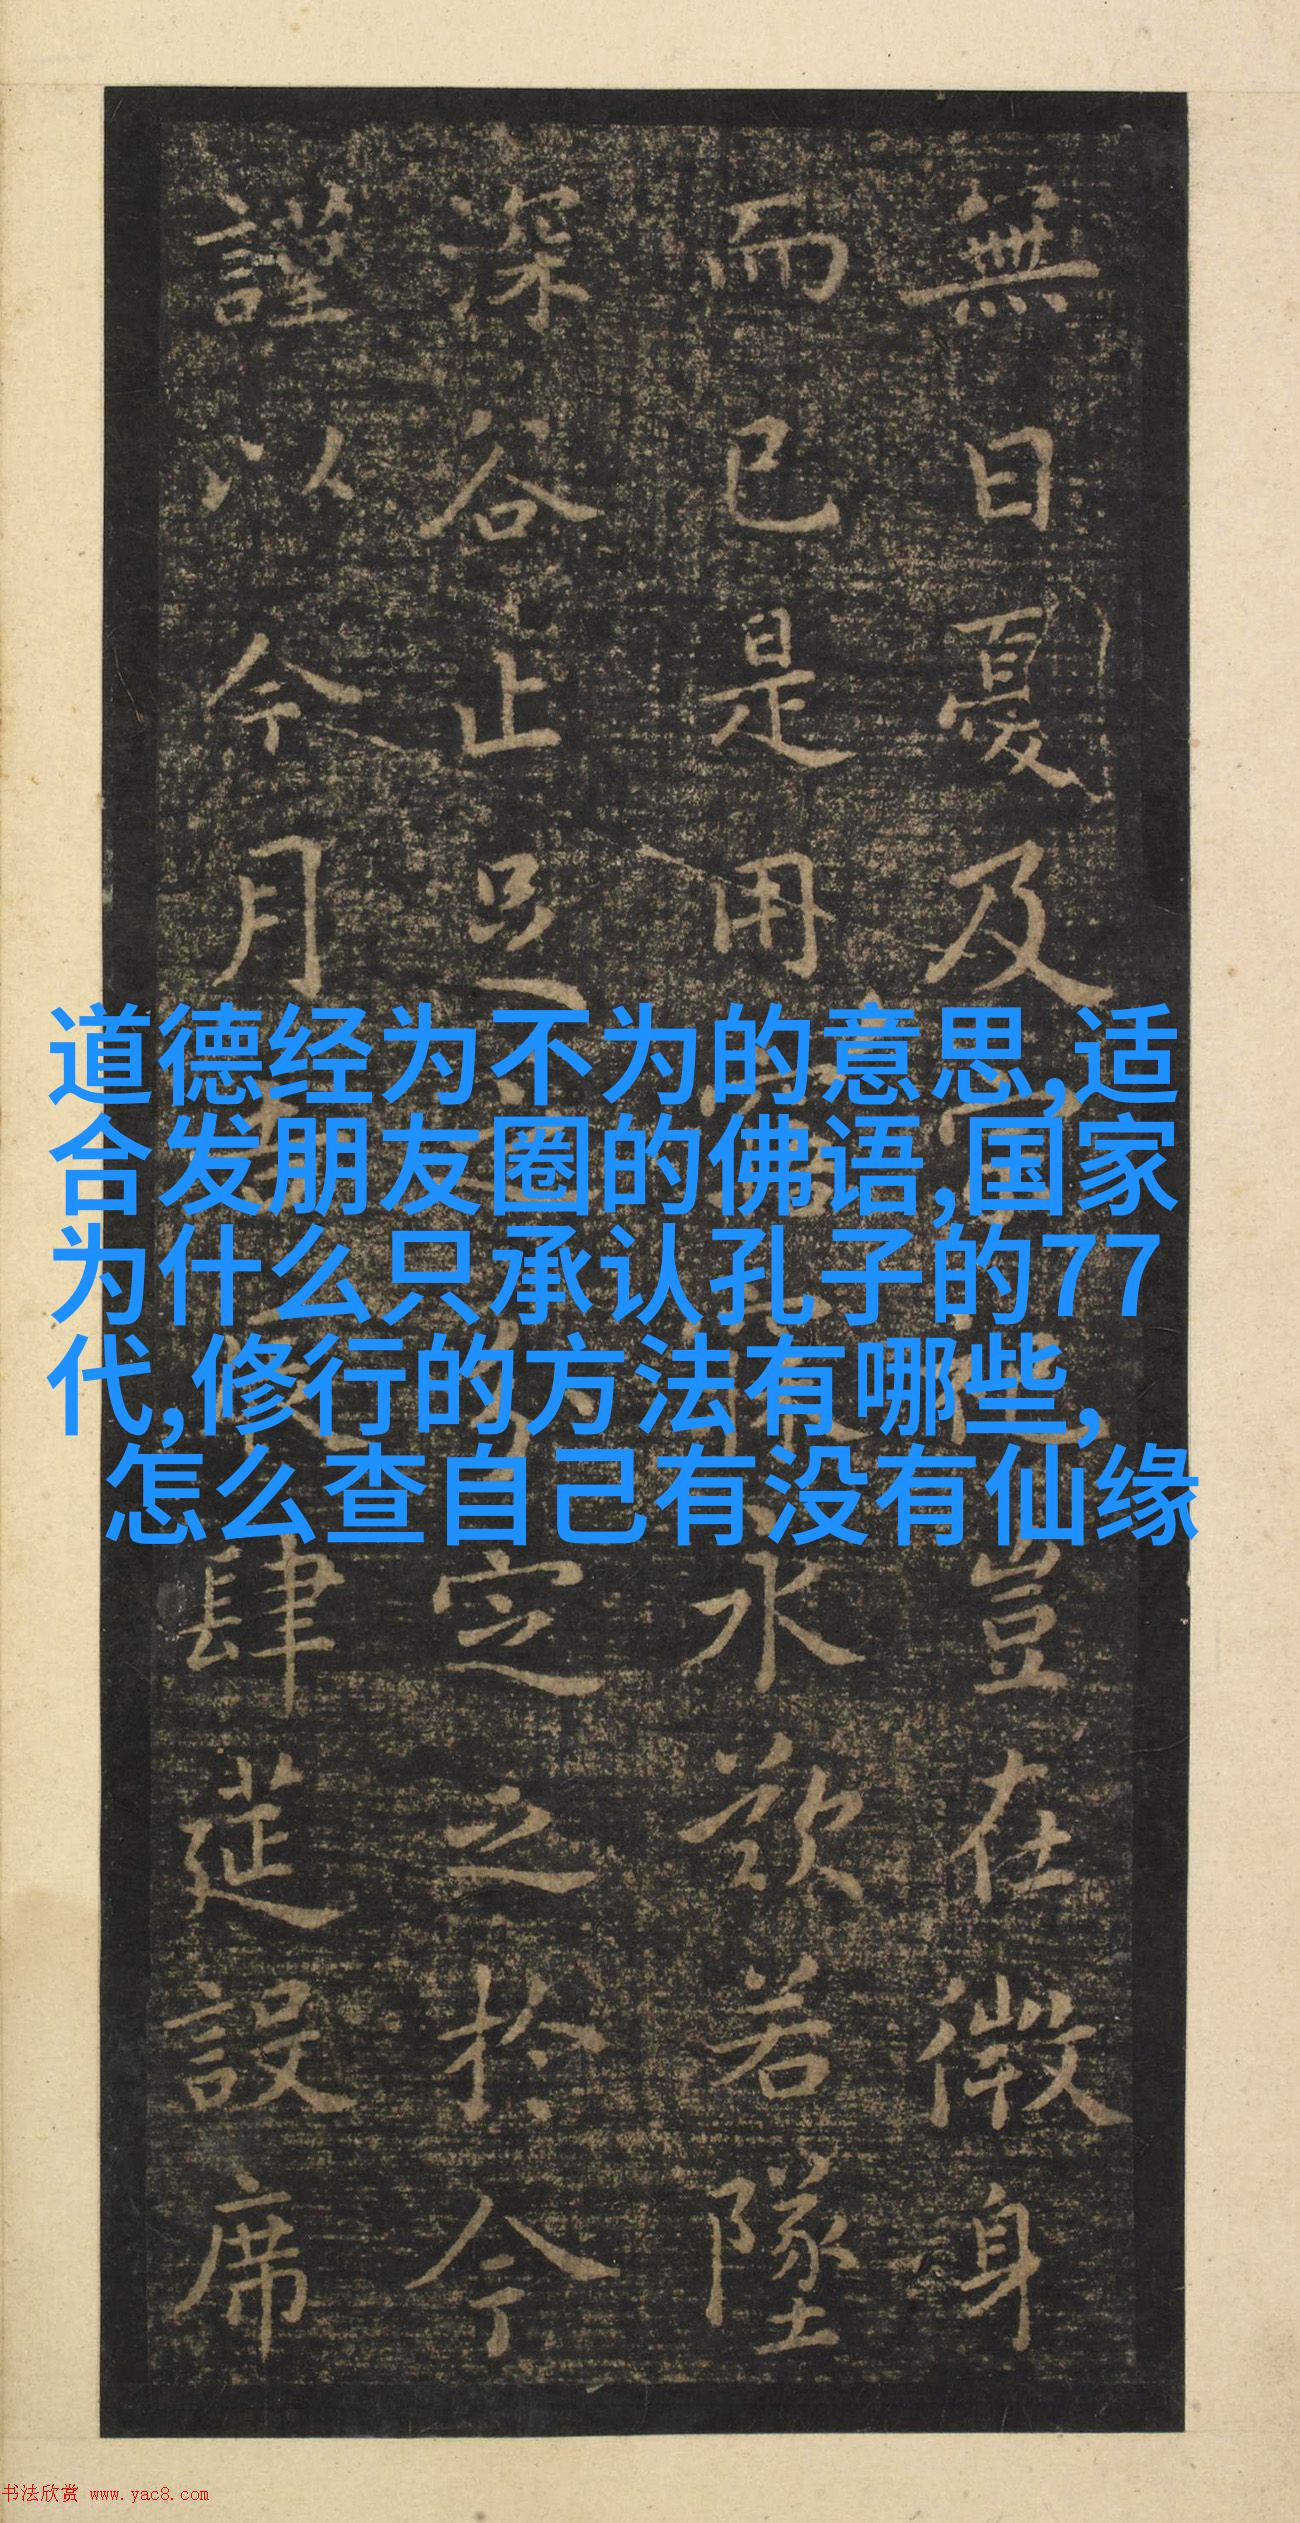 無日憂及
豈在微身
而已是用
永歎若墜
深谷止足
定之於今
謹以今月
肆筵設席
道德经为不为的意思,适
合发朋友圈的佛语,国家
为什么只承认孔子的77
代,修行的方法有哪些,
怎么查自己有没有仙缘
书法欣赏 www.yac8.com